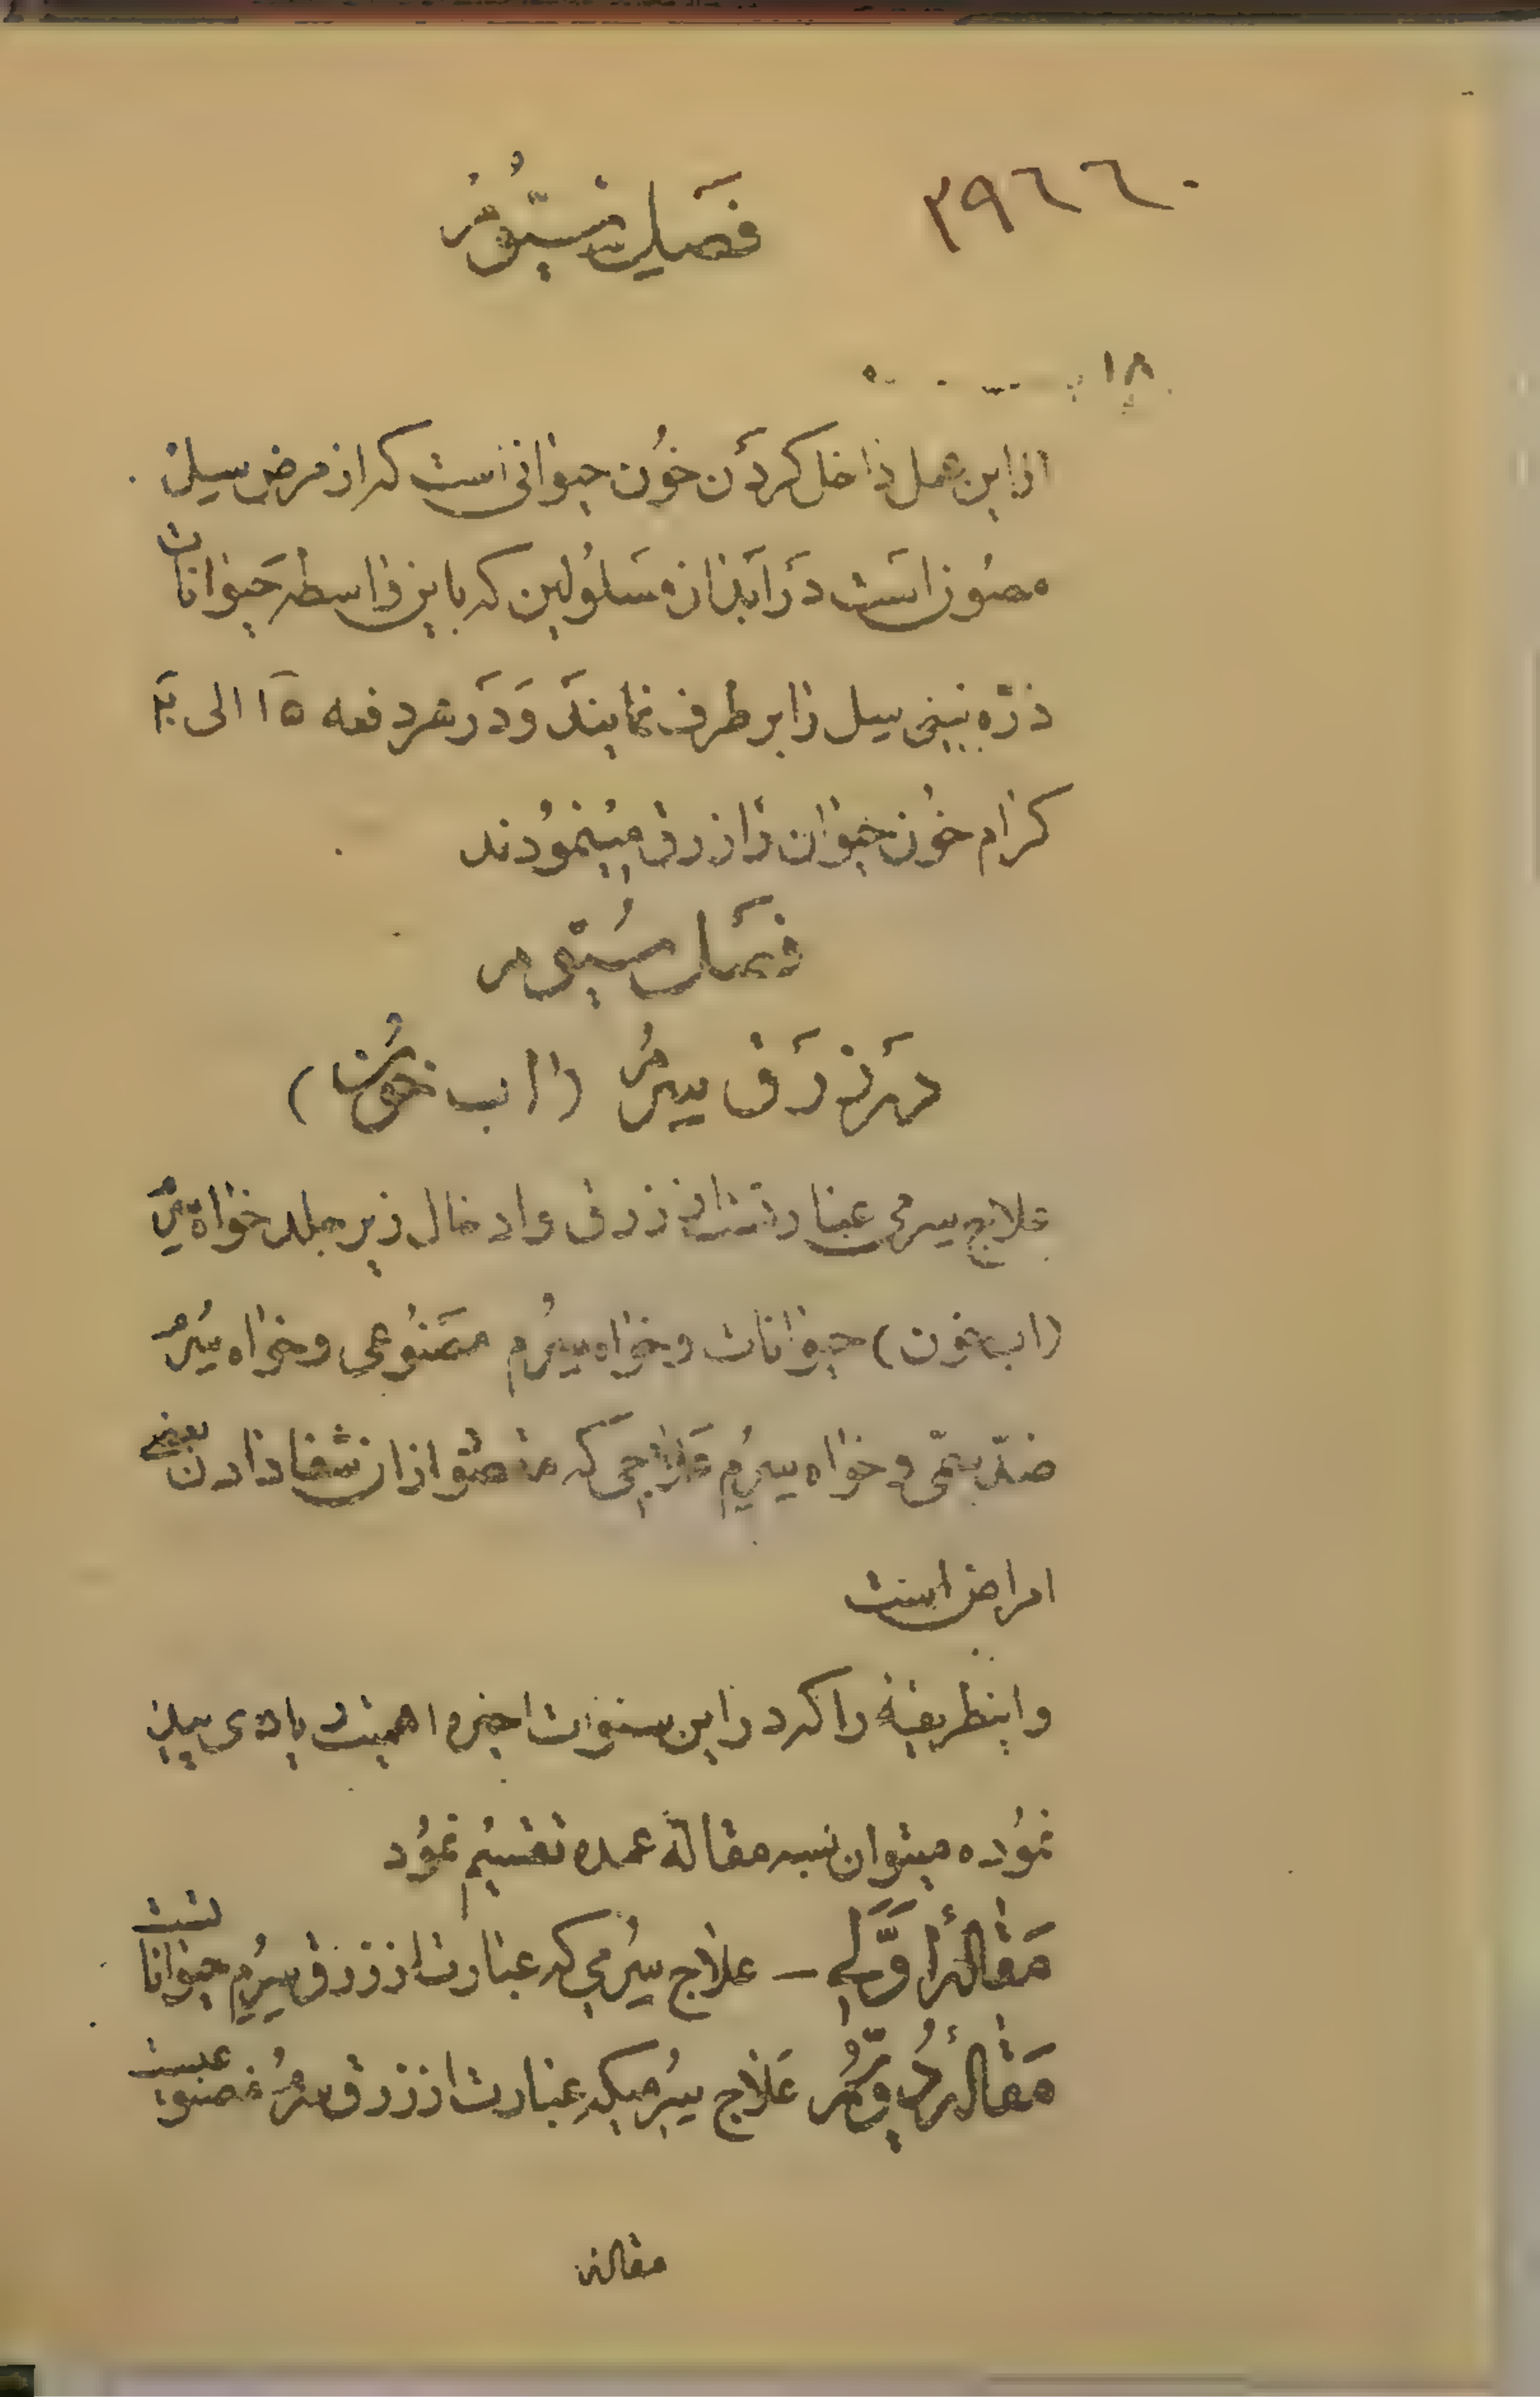 ۳۹۶۶۰
فصل سیّوم
۱۸
از این عمل داخل کردن خون حیوانی است که از مرض سیل
مصون است در ابدان مسلولین که باین واسطه حیوانات
ذرّه بینی سیل را بر طرف نمایند و در هر دفعه ۱۵ الی ۲۰
کرام خون حیوان را زرق مینمودند
فصل سیّوم
در زرق سیرم (اب خون)
علاج سیرمی عبارتست از زرق و ادخال زیر جلد خواه سیرم
(اب خون) حیوانات و خواه سیرم مصنوعی و خواه سیرم
ضدّ سمّی و خواه سیرم علاجی که مقصود از ان شفا دادن بعضی
امراض است
و اینطریقه را که در این سنوات اخیره اهمیت زیادی پیدا
نموده میتوان بسه مقاله عمده تقسیم نمود
مقالهٔ اوّل – علاج سیرمی که عبارت از زرق سیرم حیواناتست
مقالهٔ دوّم علاج سیرمیکه عبارت از زرق سرم مصنوعیست
مقاله